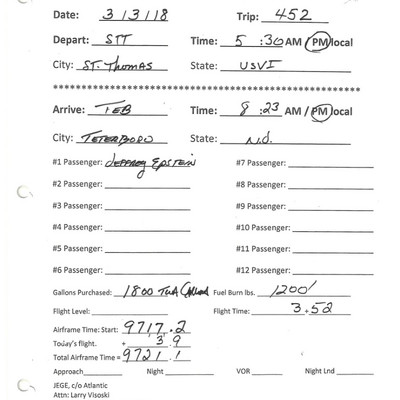 Date: 3/3/18 Trip: 452
Depart: STT Time: 5 :30 AM / PM local
City: ST. Thomas State: USVI
********************************************************
Arrive: TEB Time: 8 :23 AM / PM local
City: TETERBORO State: N.J.
#1 Passenger: Jeffrey Epstein #7 Passenger:
#2 Passenger: #8 Passenger:
#3 Passenger: #9 Passenger:
#4 Passenger: #10 Passenger:
#5 Passenger: #11 Passenger:
#6 Passenger: #12 Passenger:
Gallons Purchased: 1800 Fuel Burn lbs. 1200'
Flight Level: Flight Time: 3.52
Airframe Time: Start: 9717.2
Today's flight. + 3.9
Total Airframe Time = 9721.1
Approach Night VOR Night Lnd
JEGE, c/o Atlantic
Attn: Larry Visoski